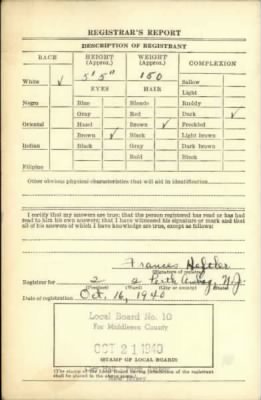 REGISTRAR'S REPORT
DESCRIPTION OF REGISTRANT
RACE HEIGHT (Approx.) WEIGHT (Approx.) COMPLEXION
White ✓ 5' 5" 150 Sallow
EYES HAIR Light
Negro Blue Blonde Ruddy
Gray Red Dark ✓
Oriental Hazel Brown ✓ Freckled
Brown ✓ Black Light brown
Indian Black Gray Dark brown
Bald Black
Filipino
Other obvious physical characteristics that will aid in identification
I certify that my answers are true; that the person registered has read or has had
read to him his own answers; that I have witnessed his signature or mark and that
all of his answers of which I have knowledge are true, except as follows:
Frances
Signature of registrar
Registrar for 2 2 Perth Amboy, N.J.
(Precinct) (Ward) (City or county) (State)
Date of registration Oct. 16, 1940
Local Board No. 10
For Middlesex County
OCT 21 1940
(STAMP OF LOCAL BOARD)
(The stamp of the Local Board having jurisdiction of the registrant
shall be placed in the above space.)